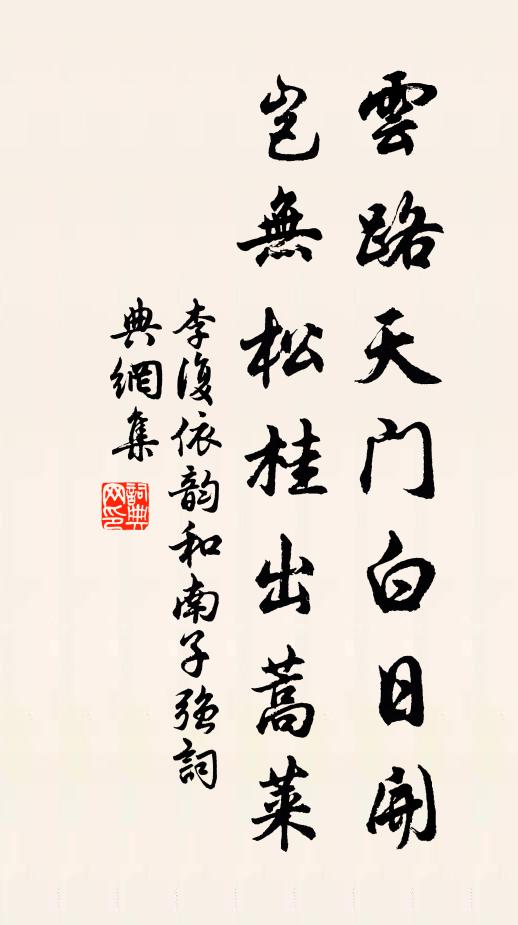 雲路天門白日開
豈無松桂出蒿萊
李復依韵和南子強詞
典網集
詞典
网印